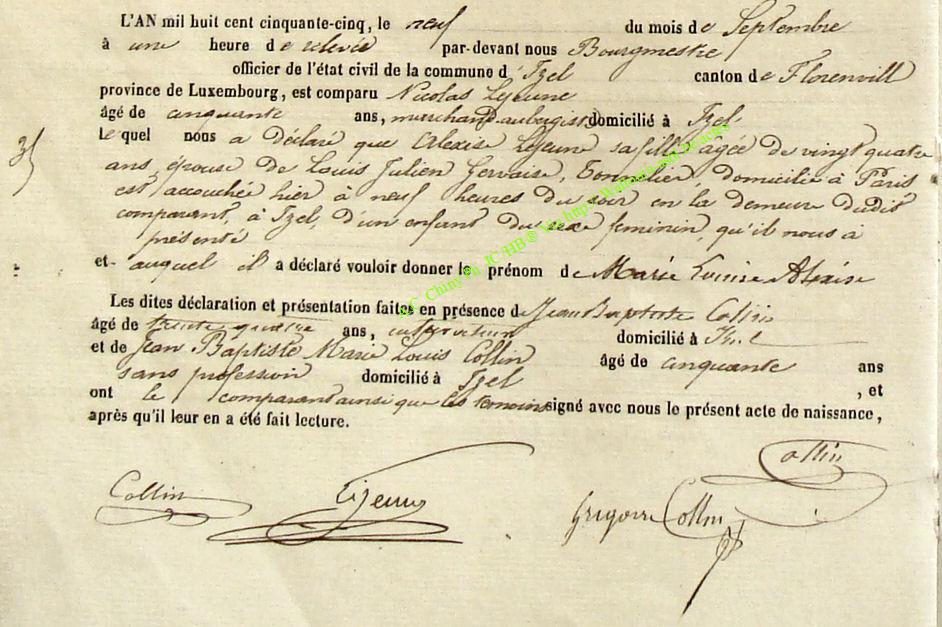 L'AN mil huit cent cinquante-cinq, le neuf du mois de Septembre
à une heure de relevée par-devant nous Bourgmestre
officier de l'état civil de la commune d'Izel canton de Florenvill
province de Luxembourg, est comparu Nicolas Lejeune
âgé de cinquante ans, marchand aubergiste domicilié à Izel
le quel nous a déclaré que Alexise Lejeune sa fille agée de vingt quatre
35
ans épouse de Louis Julien Gervaise, Tonnelier, domicilié à Paris
est accouchée hier à neuf heures du soir en la demeure dudit
comparant, à Izel, d'un enfant du sexe feminin, qu'il nous à
présenté
et auquel il a déclaré vouloir donner le prénom de Marie Louise Alexise
Les dites déclaration et présentation faites en présence de Jean Baptiste Collin
âgé de trente quatre ans, cultivateur domicilié à Izel
et de Jean Baptiste Marie Louis Collin âgé de cinquante ans
sans profession domicilié à Izel , et
ont le comparant ainsi que les temoins signé avec nous le présent acte de naissance,
après qu'il leur en a été fait lecture.
Collin
Collin Lejeune Grégoire Collin
Chiny JC HB®